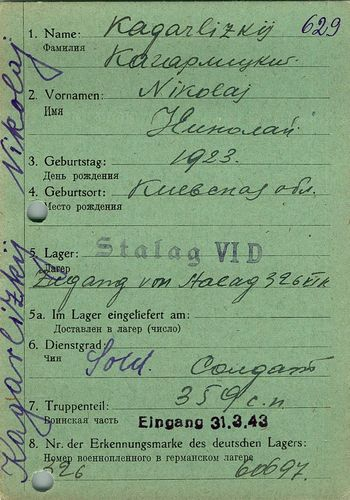 629
1. Name: Kagarlizkij
Фамилия Кагарлицкий
2. Vornamen: Nikolaj
Имя
Николай
3. Geburtstag: 1923.
День рождения
4. Geburtsort: Киевская обл.
Место рождения
5. Lager: Stalag VI D
Лагер
Zugang von Stalag 326 VI K
5a. Im Lager eingeliefert am:
Доставлен в лагер (число)
6. Dienstgrad:
Чин Sold. Солдат
7. Truppenteil: 359 с.п.
Воинская часть Eingang 31.3.43
8. Nr. der Erkennungsmarke des deutschen Lagers:
Номер военнопленного в германском лагере
326 60697.
Kagarlizkij Nikolaj